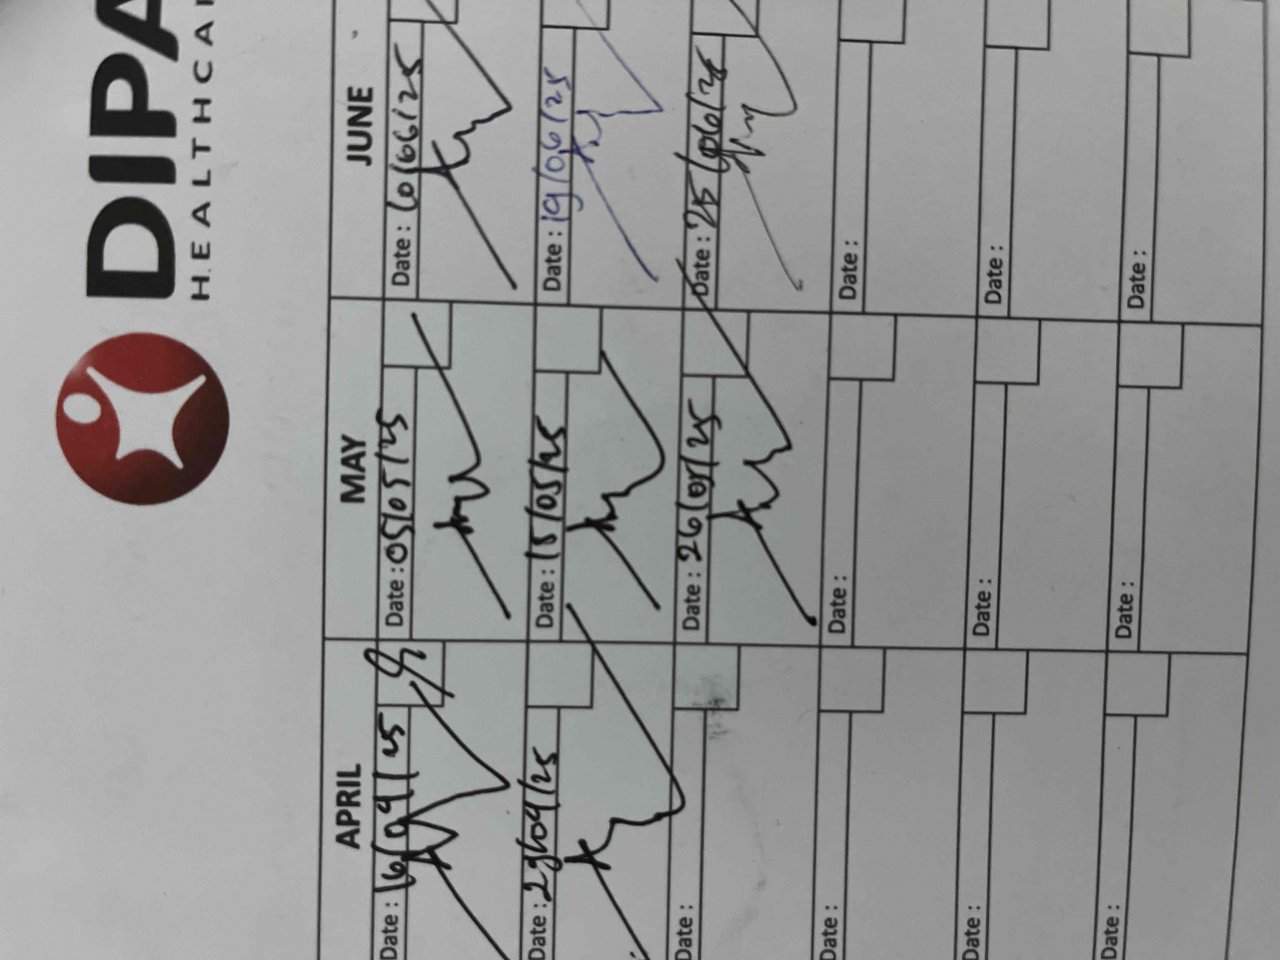 DIPA
HEALTHCA
APRIL MAY JUNE
Date : 16/04/25 Date : 05/05/25 Date : 10/06/25
Date : 29/04/25 Date : 15/05/25 Date : 19/06/25
Date : Date : 26/05/25 Date : 25/06/25
Date : Date : Date :
Date : Date : Date :
Date : Date : Date :